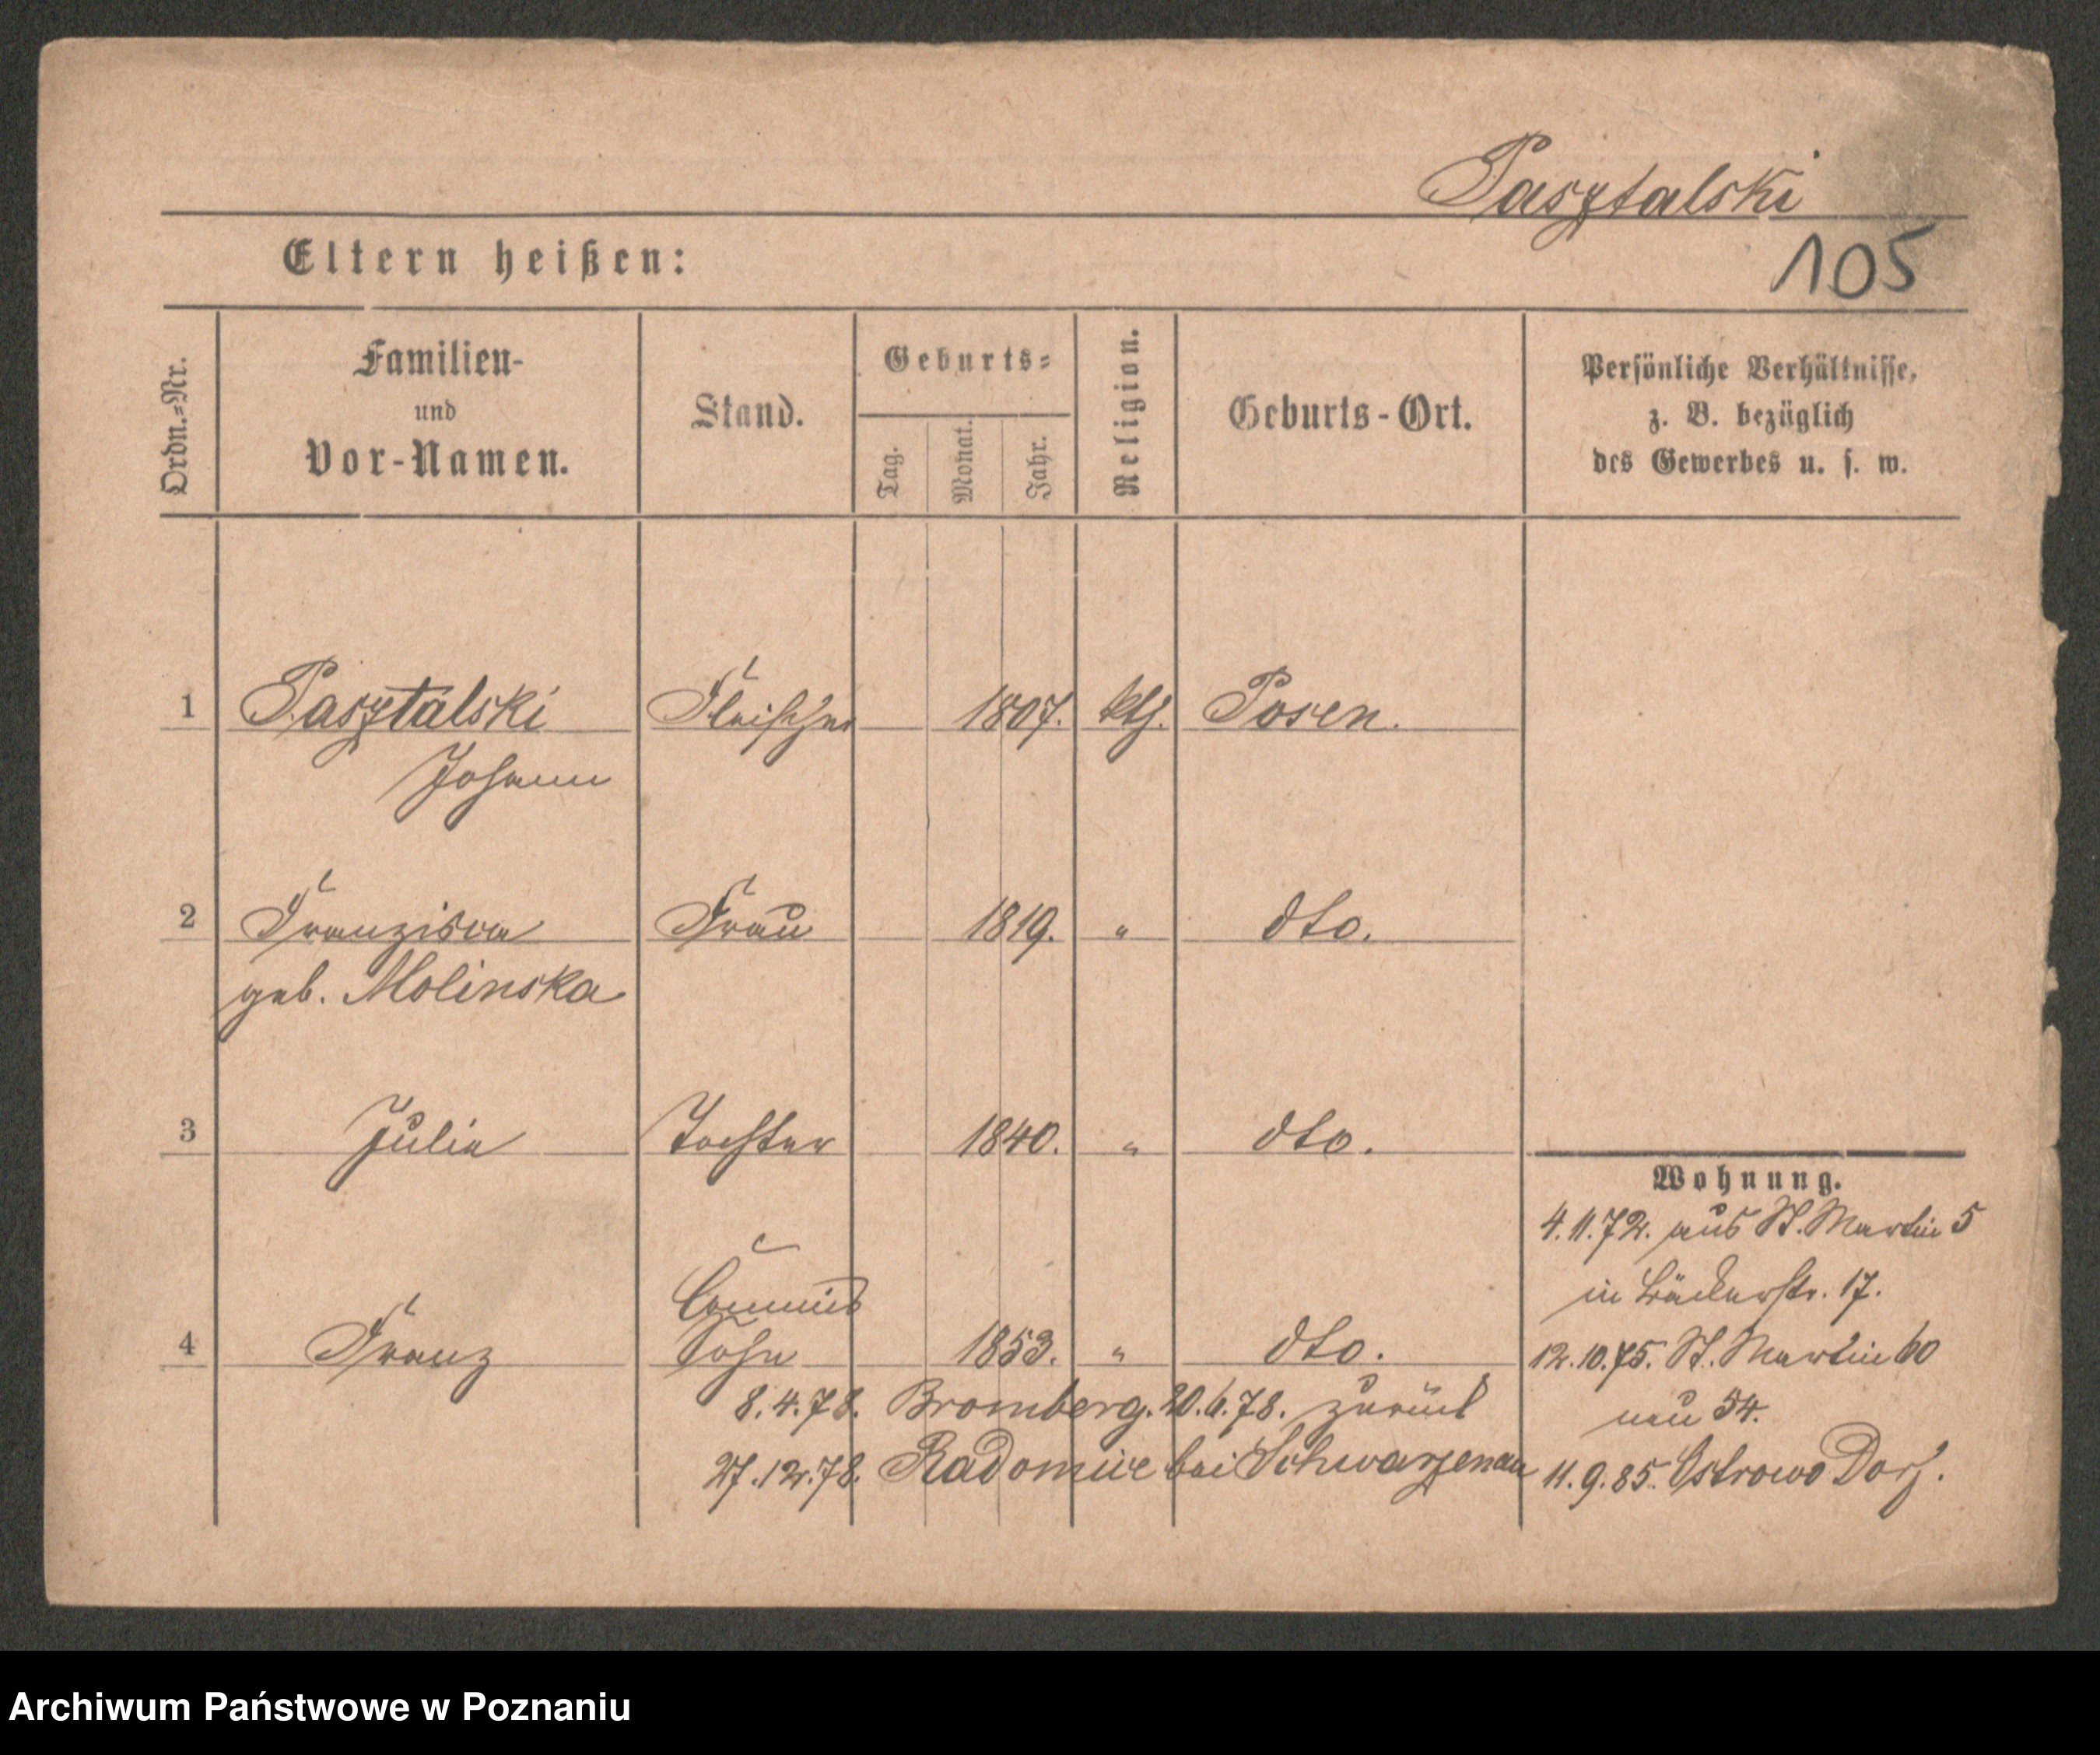 Pasztalski
Eltern heißen:
105
Ordn.-Nr.
Familien-
und
Vor-Namen.
Stand.
Geburts-
Tag.
Monat.
Jahr.
Religion.
Geburts-Ort.
Persönliche Verhältnisse,
z. B. bezüglich
des Gewerbes u. s. w.
1 Pasztalski Fleischer 1807. kth. Posen.
Johann
2 Franziska Frau 1819. " dto.
geb. Molinska
3 Julie Tochter 1840. " dto.
Commis
4 Franz Sohn 1853. " dto.
8.4.78. Bromberg. 20.6.78. zurück
27.12.78. Radomice bei Schwarzenau
Wohnung.
4.11.72. aus St. Martin 5
in Bäckerstr. 17.
12.10.75. St. Martin 60
neu 54.
11.9.85. Ostrowo Dorf.
Archiwum Państwowe w Poznaniu